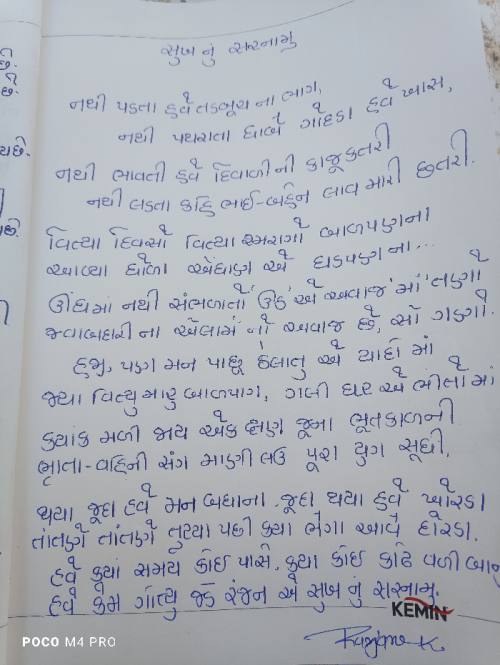 સુખ નું સરનામુ
નથી પડતા હવે તડબૂચ ના ભાગ,
નથી પથરાતા ધાબે ગોદડા હવે ખાસ,
નથી ભાવતી હવે દિવાળીની કાજૂકતરી
નથી લડતા કહિ ભાઈ-બહેન લાવ મારી છતરી.
વિત્યા દિવસો વિત્યા સ્મરણો બાળપણના
આવ્યા ધોળા એંધાણ એ ઘડપણ ના...
ઊંઘમાં નથી સંભળાતો ઉઠ એ અવાજ માં તણો
જવાબદારી ના એલાર્મ નો અવાજ છે, સૌ ગણો
હજુ, પણ મન પાછૂ ઠેલાતુ એ યાદો માં
જ્યા વિત્યુ મારુ બાળપણ, ગલી ઘર એ ભીંતો માં
ક્યાંક મળી જાય એક ક્ષણ જૂના ભૂતકાળની
ભ્રાતા-વહિની સંગ માણી લઉ પૂરા યુગ સૂધી.
થયા જૂદા હવે મન બધાના જૂદા થયા હવે ઓરડા
તાંતણે તાંતણે તુટ્યા પછી ક્યા ભેગા આવે દોરડા.
હવે ક્યાં સમય કોઈ પાસે, ક્યા કોઈ કાઢે વળી બાનુ
હવે કેમ ગોત્યુ જડે રંજન એ સુખ નું સરનામુ.
KEMIN
Ranjan K.
છે.
છે.
છે.
POCO M4 PRO